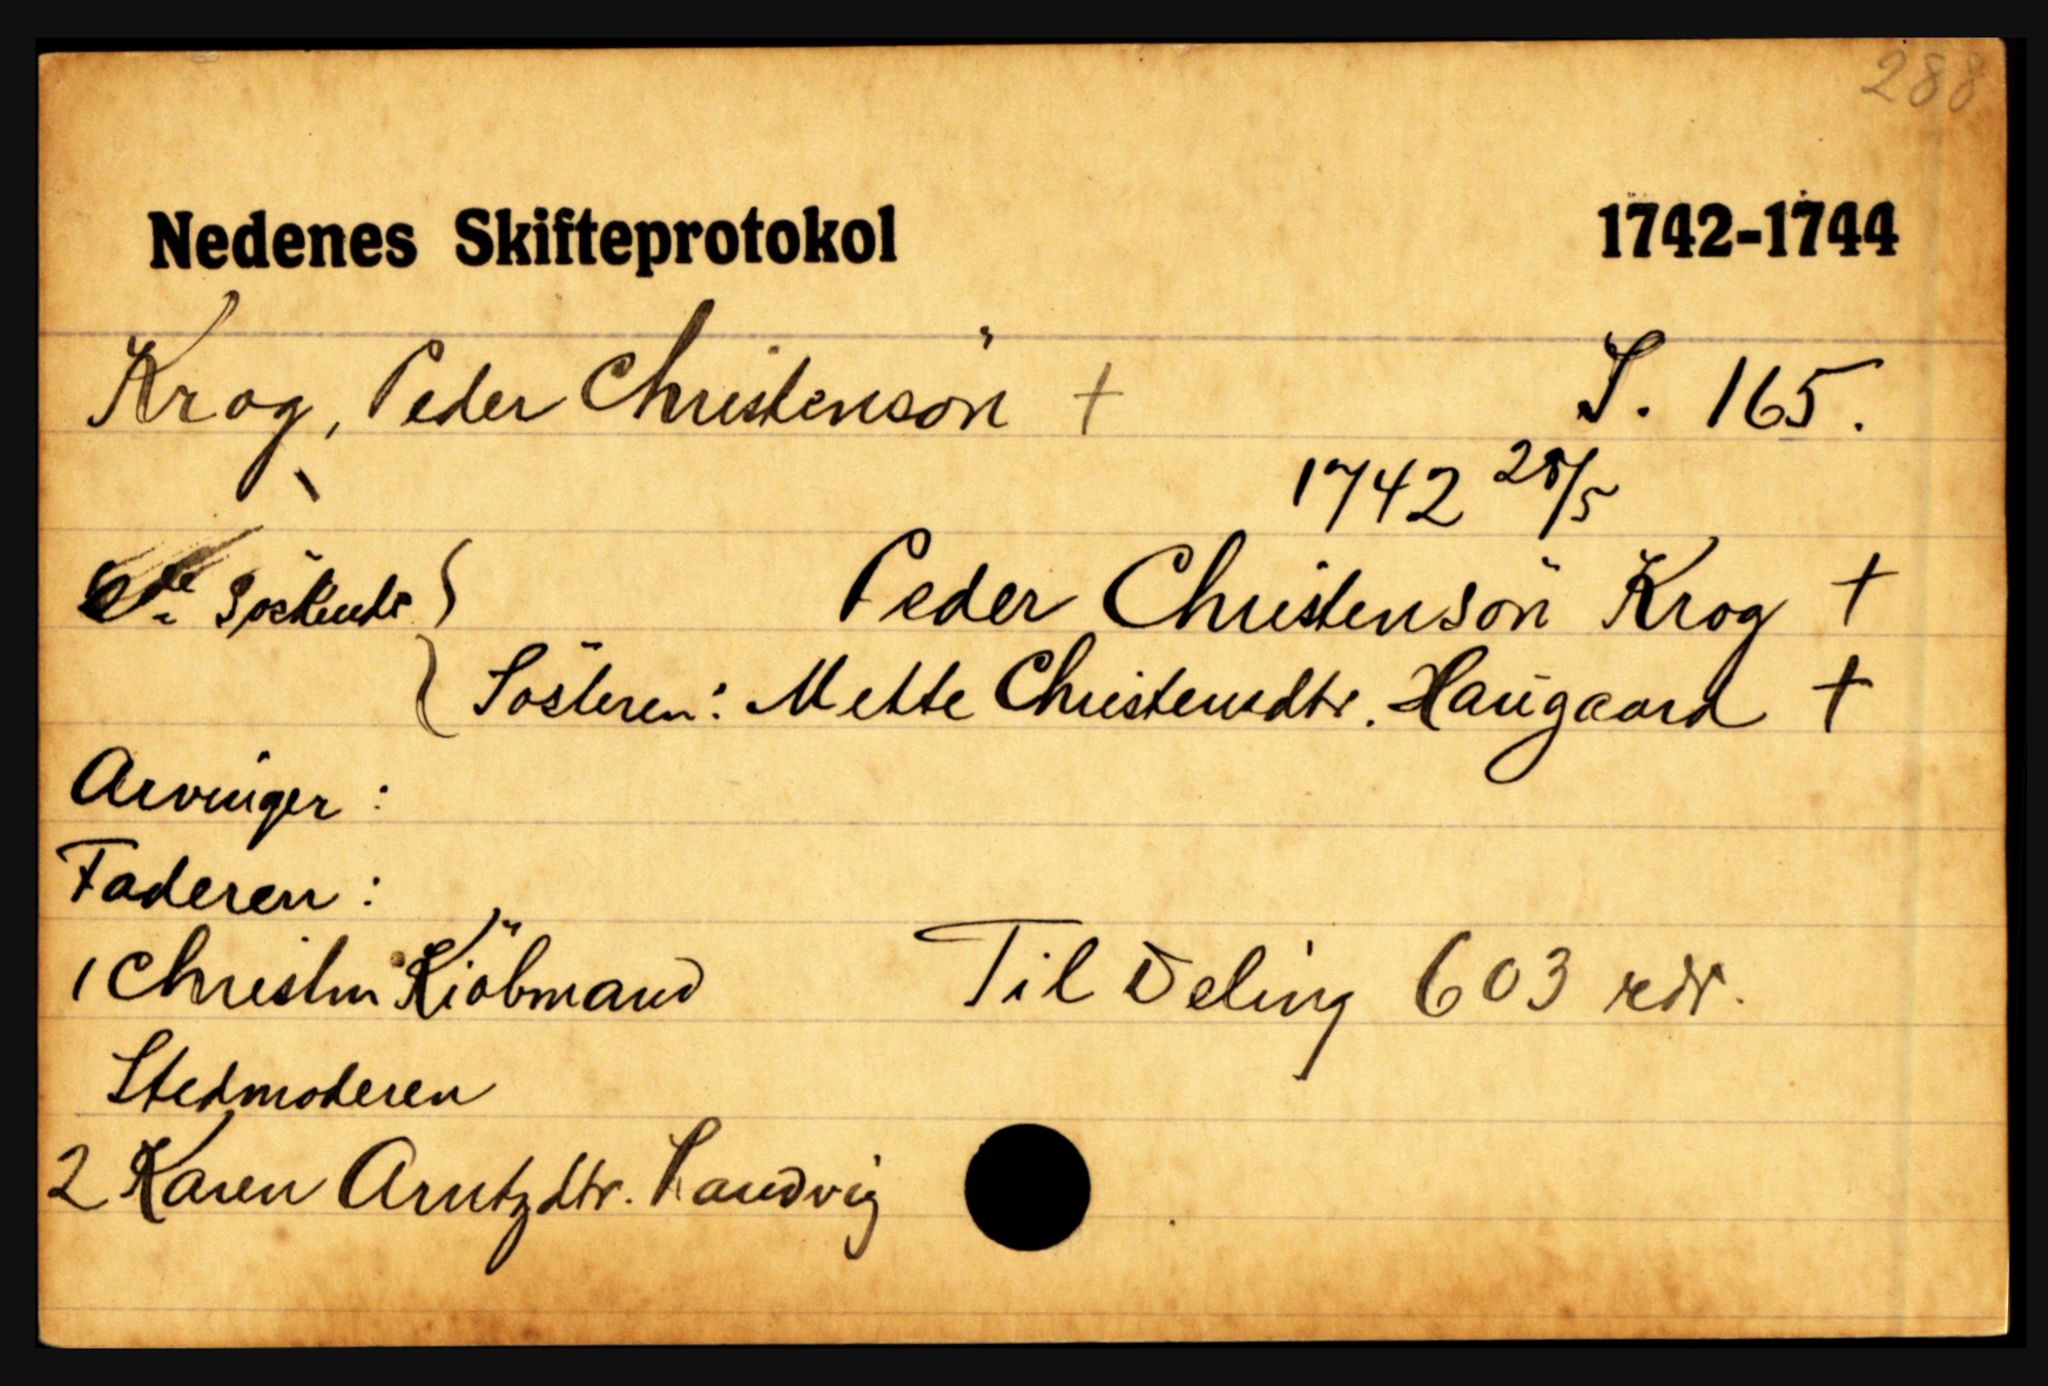 288
Nedenes Skifteprotokol 1742-1744
Krog, Peder Christensön † S. 165.
1742 28/5
Söskende } Peder Christensön Krog †
} Sösteren: Mette Christensdtr. Haugaard †
Arvinger:
Faderen:
1 Christen Kiöbmand Til Deling 603 rdr.
Stedmoderen
2 Karen Arntzdtr. Landvig